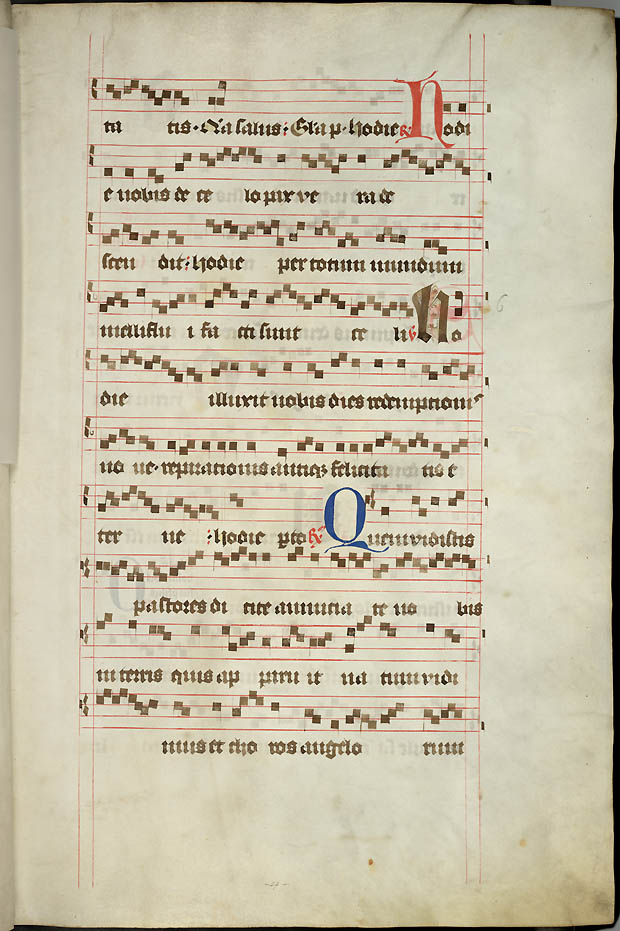 ta tis · Q̄a salus : Gl̄a p · hodie ℟ Hodi
e nobis de ce lo pax ve ra de
scen dit : hodie per totum mundum
melliflu i fa cti sunt ce li ℣ Ho
die illuxit nobis dies redemptionis
no ve · reparationis antiq̄ felicita tis e
ter ne : hodie p to ℟ Quem vidistis
pastores di cite annuncia te no bis
in terris quis ap paru it na tum vidi
mus et cho ros angelo rum